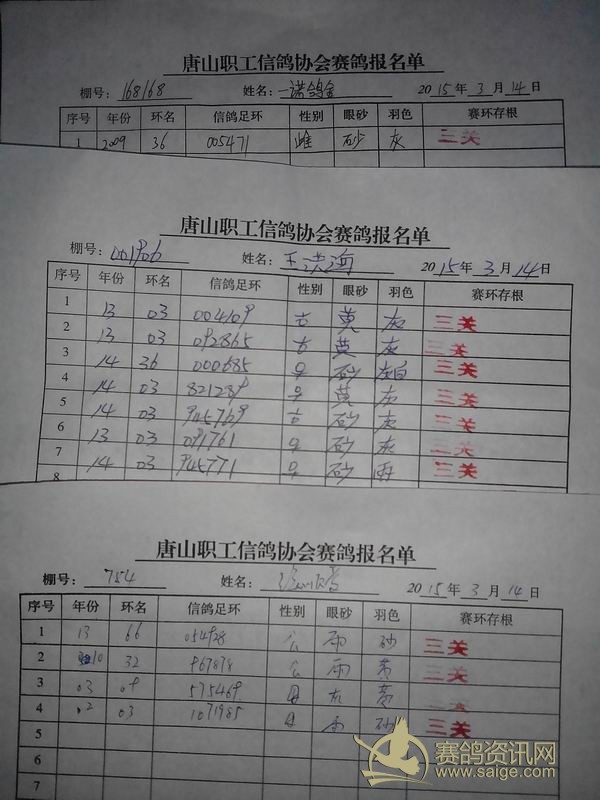 唐山职工信鸽协会赛鸽报名单
棚号: 168168 姓名: 一诺鸽舍 2015年3月14日
序号 年份 环名 信鸽足环 性别 眼砂 羽色 赛环存根
1 2009 36 005471 雌 砂 灰 三关
唐山职工信鸽协会赛鸽报名单
棚号: 001906 姓名: 王洪海 2015年3月14日
序号 年份 环名 信鸽足环 性别 眼砂 羽色 赛环存根
1 13 03 004109 黄 灰 三关
2 13 03 092865 黄 灰 三关
3 14 36 000685 砂 三关
4 14 03 821289 黄 灰 三关
5 14 03 945769 砂 灰 三关
6 13 03 091761 砂 灰 三关
7 14 03 945771 砂 雨 三关
8
唐山职工信鸽协会赛鸽报名单
棚号: 754 姓名: 2015年3月14日
序号 年份 环名 信鸽足环 性别 眼砂 羽色 赛环存根
1 13 66 054928 公 雨 砂 三关
2 10 32 967878 公 雨 黄 三关
3 03 09 575469 母 灰 黄 三关
4 02 03 1071985 母 三关
5
6
7
赛鸽资讯网
www.saige.com